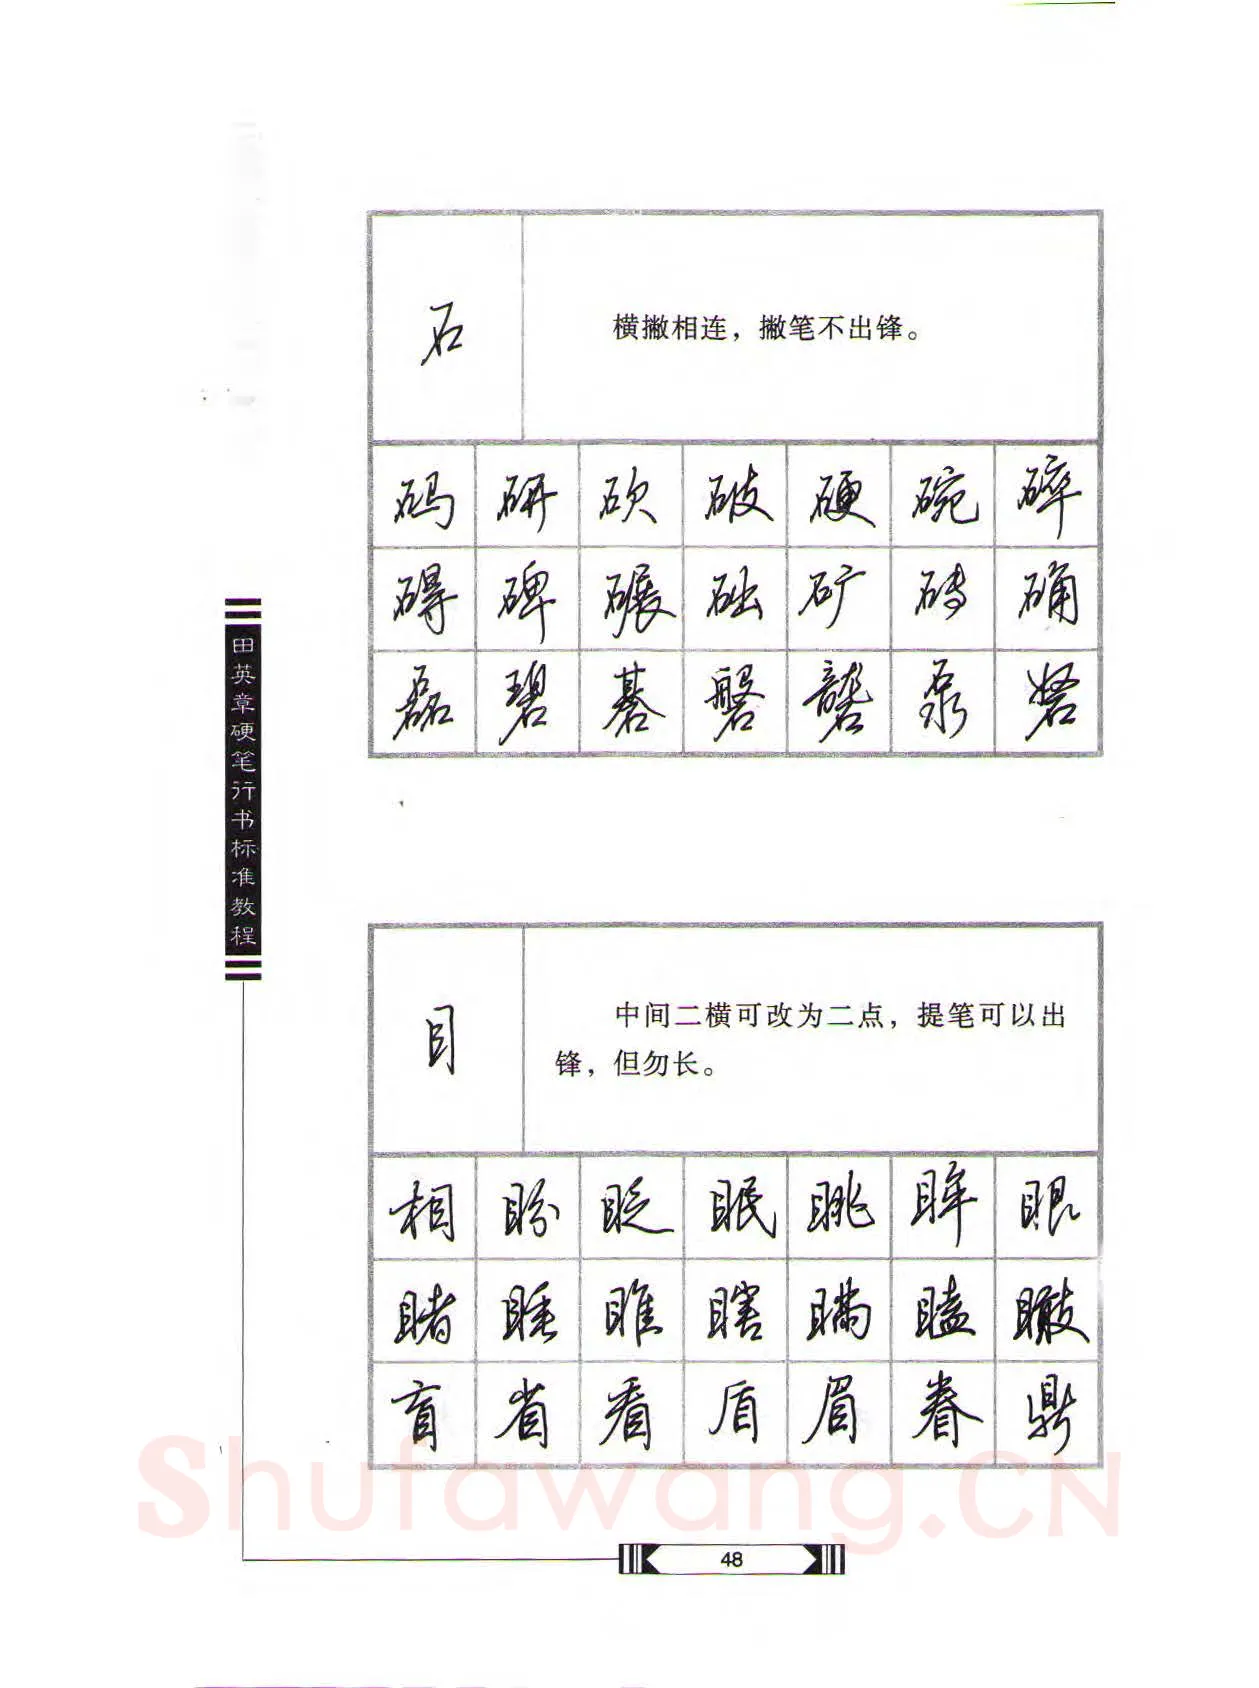 石
横撇相连，撇笔不出锋。
码 研 砍 破 硬 碗 碎
碍 碑 碾 础 矿 砖 确
磊 碧 碁 磐 砻 泵 砮
田英章硬笔行书标准教程
目
中间二横可改为二点，提笔可以出
锋，但勿长。
相 盼 眨 眠 眺 眸 眼
睹 睡 睢 瞎 瞒 瞌 瞰
盲 省 看 盾 眉 眷 鼎
Shufawang.CN
48